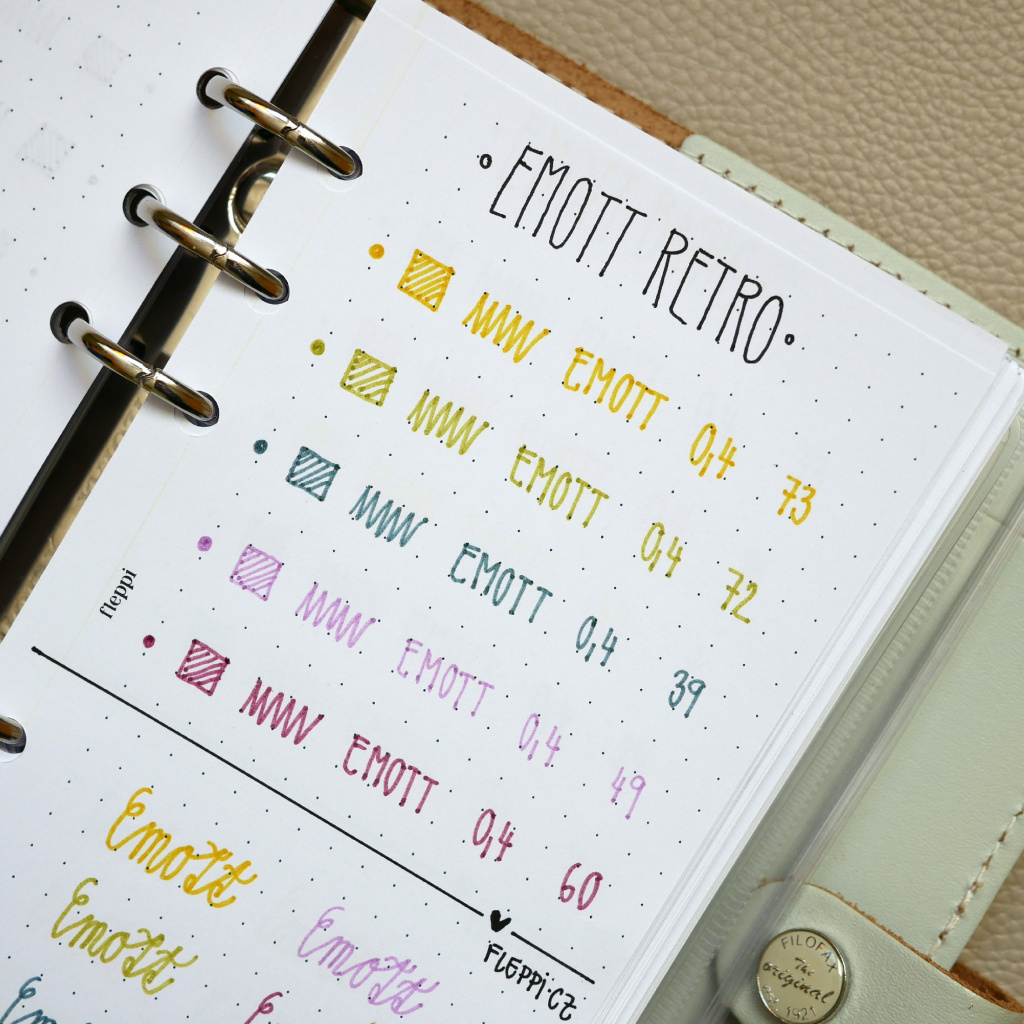 • EMOTT RETRO •
EMOTT 0,4 73
EMOTT 0,4 72
EMOTT 0,4 39
EMOTT 0,4 49
EMOTT 0,4 60
fleppi
FLEPPI.CZ
Emott
Emott
Emott
FILOFAX
The
original